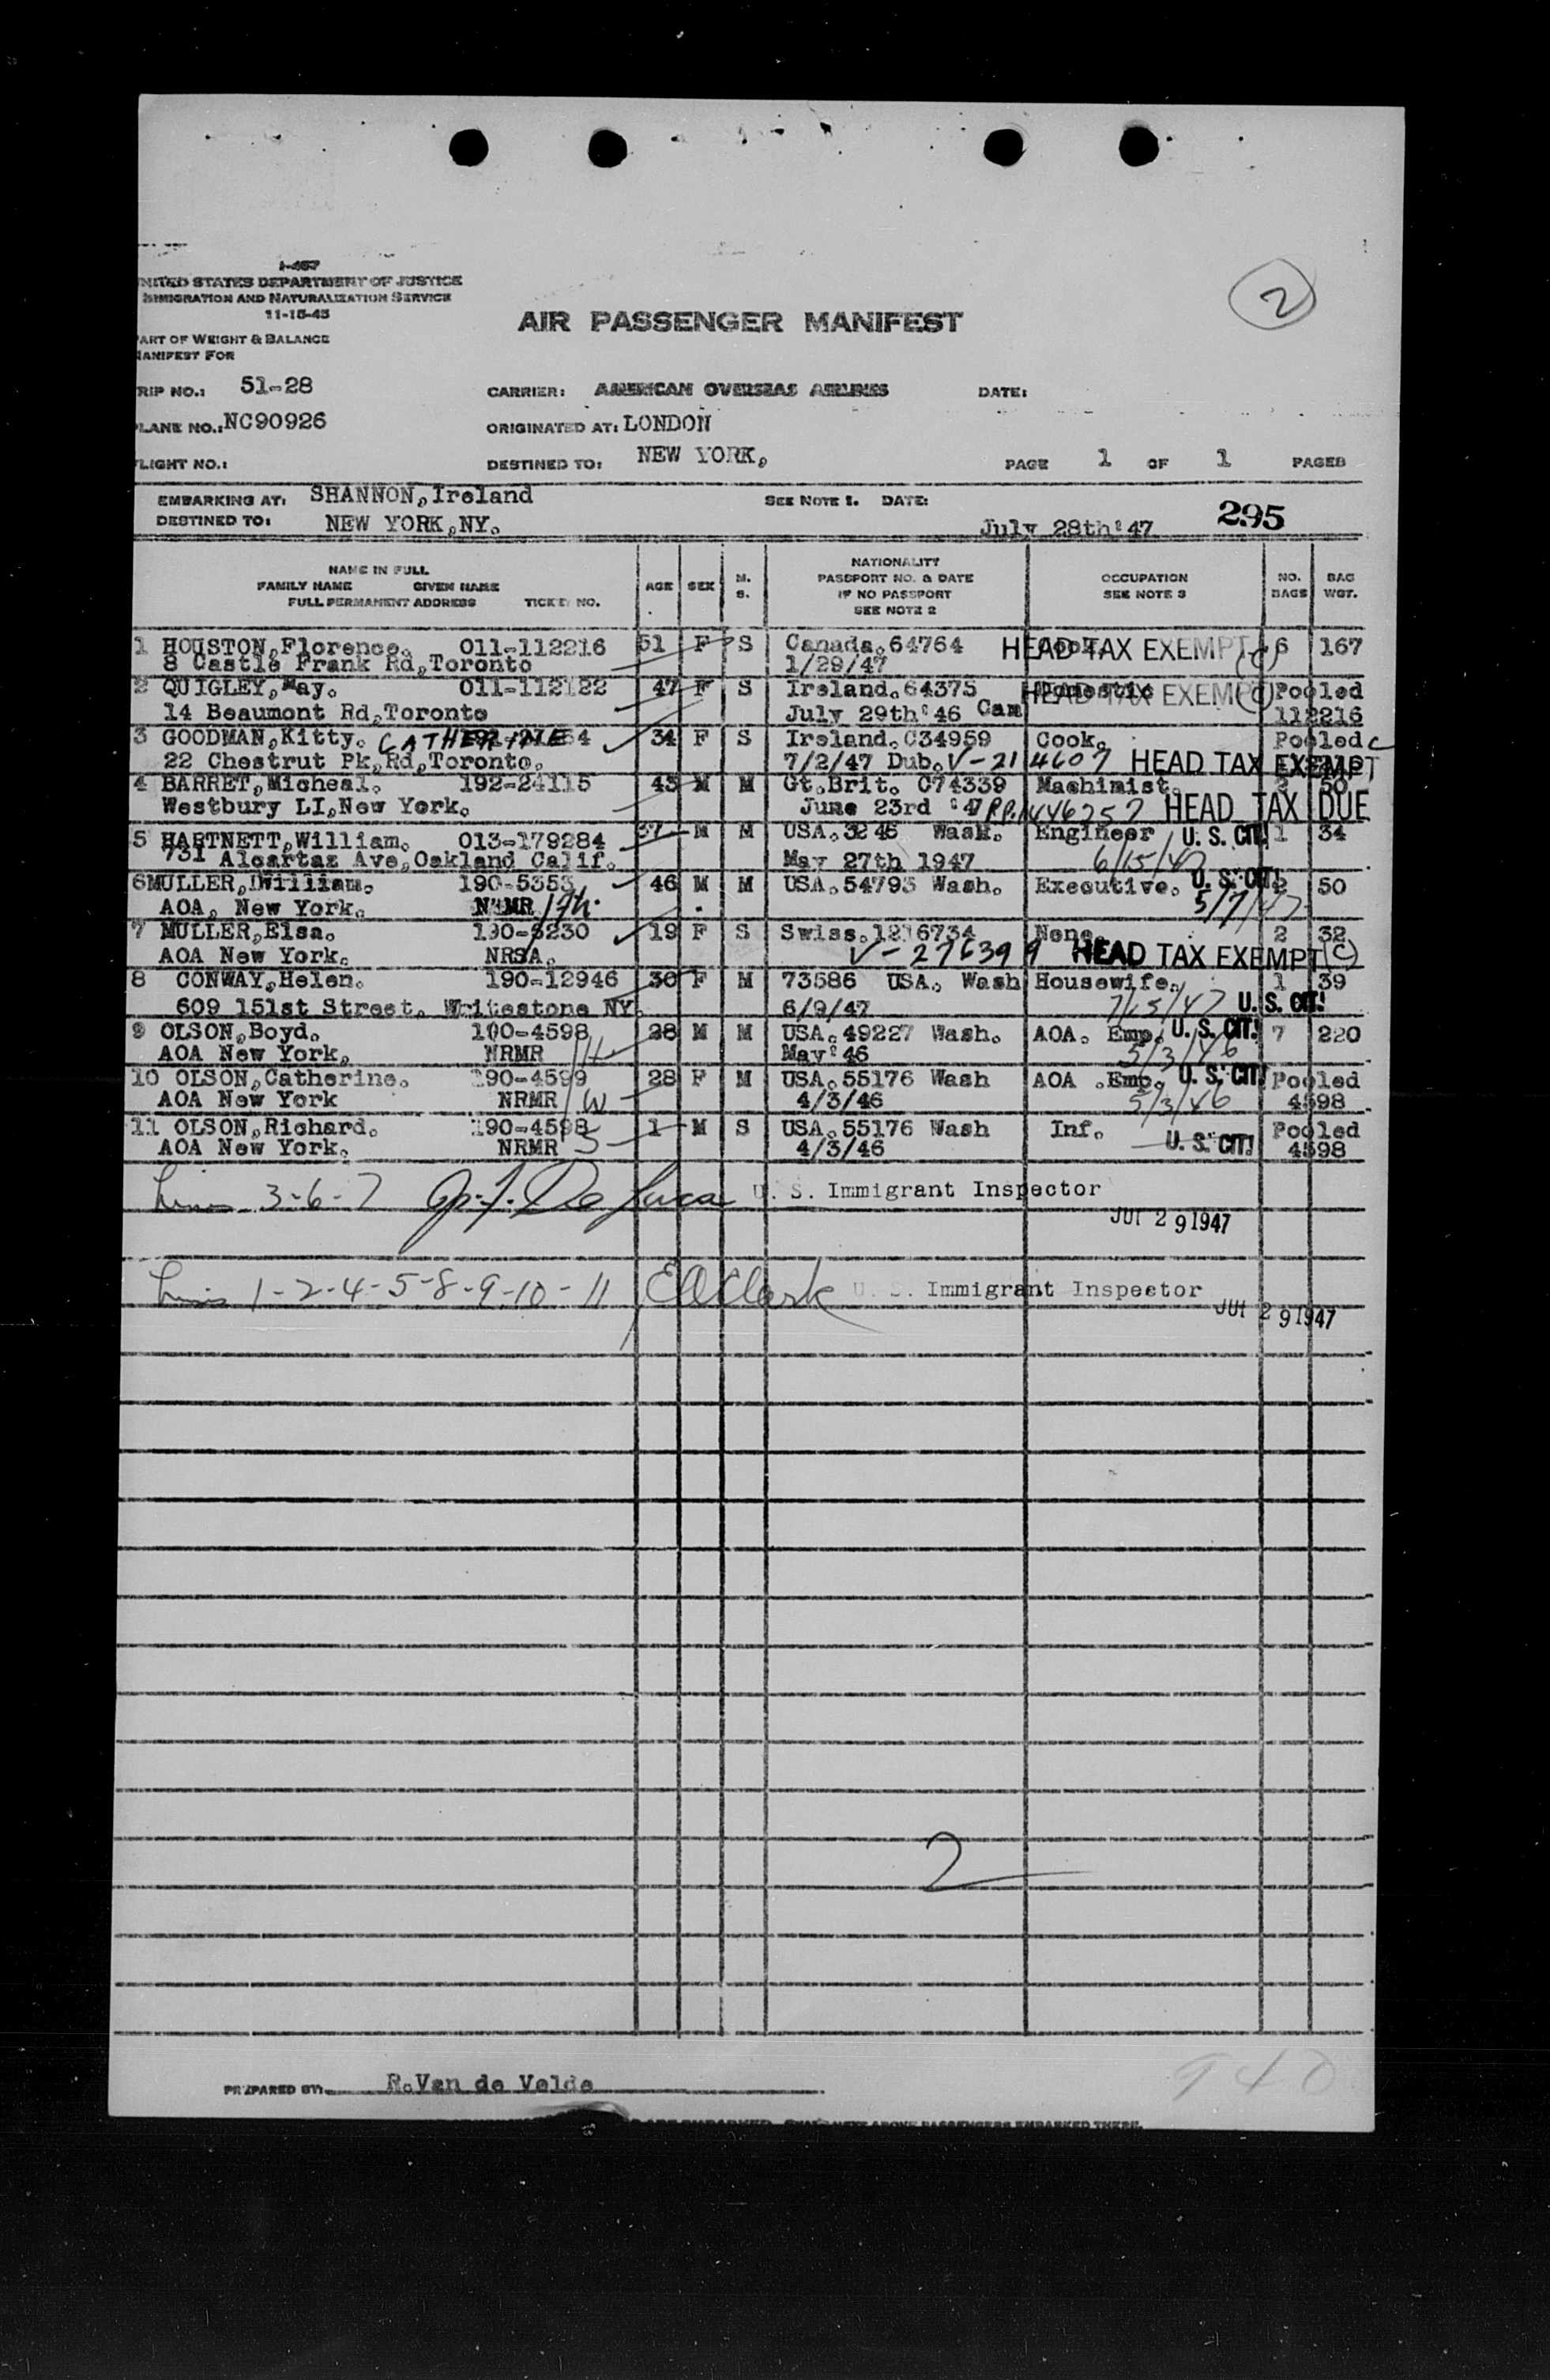 I-467
NITED STATES DEPARTMENT OF JUSTICE
IMMIGRATION AND NATURALIZATION SERVICE
11-15-45
ART OF WEIGHT & BALANCE
MANIFEST FOR
AIR PASSENGER MANIFEST
2
RIP NO.: 51-28 CARRIER: AMERICAN OVERSEAS AIRLINES DATE:
LANE NO.: NC90926 ORIGINATED AT: LONDON
LIGHT NO.: DESTINED TO: NEW YORK, PAGE 1 OF 1 PAGES
EMBARKING AT: SHANNON, Ireland SEE NOTE 1. DATE: July 28th'47 295
DESTINED TO: NEW YORK, NY.
NAME IN FULL
FAMILY NAME GIVEN NAME
FULL PERMANENT ADDRESS TICKET NO.
AGE SEX M. S.
NATIONALITY
PASSPORT NO. & DATE
IF NO PASSPORT
SEE NOTE 2
OCCUPATION
SEE NOTE 3
NO. BAGS
BAG WGT.
1 HOUSTON, Florence. 011-112216 51 F S Canada. 64764 HEAD TAX EXEMPT 6 167
8 Castle Frank Rd, Toronto 1/29/47
2 QUIGLEY, May. 011-112122 47 F S Ireland. 64375 Domestic HEAD TAX EXEMPT Pooled
14 Beaumont Rd, Toronto July 29th'46 Can 112216
3 GOODMAN, Kitty. CATHERINE 34 F S Ireland. C34959 Cook. Pooled
22 Chestrut Pk, Rd, Toronto. 7/2/47 Dub. V-214607 HEAD TAX EXEMPT
4 BARRET, Micheal. 192-24115 43 M M Gt. Brit. C74339 Machinist. 2 50
Westbury LI, New York. June 23rd '47 HEAD TAX DUE
5 HARTNETT, William. 013-179284 37 M M USA. Wash. Engineer U. S. CIT! 1 34
731 Alcartaz Ave, Oakland Calif. May 27th 1947 6/15/47
6 MULLER, William. 190-5353 46 M M USA. 54793 Wash. Executive. U. S. CIT! 2 50
AOA, New York. NRMR 5/7/47
7 MULLER, Elsa. 190-5230 19 F S Swiss. 1216734 None. 2 32
AOA New York. NRSA. V-276399 HEAD TAX EXEMPT C
8 CONWAY, Helen. 190-12946 30 F M 73586 USA. Wash Housewife. 1 39
609 151st Street. Writestone NY. 6/9/47 7/15/47 U. S. CIT!
9 OLSON, Boyd. 190-4598 28 M M USA. 49227 Wash. AOA. Emp. U. S. CIT! 7 220
AOA New York. NRMR H May'46 5/3/46
10 OLSON, Catherine. 190-4599 28 F M USA. 55176 Wash AOA .Emp. U. S. CIT! Pooled
AOA New York NRMR W 4/3/46 5/3/46 4598
11 OLSON, Richard. 190-4598 1 M S USA. 55176 Wash Inf. Pooled
AOA New York. NRMR S 4/3/46 U. S. CIT! 4598
Lines 3-6-7 De Luca U. S. Immigrant Inspector
JUL 29 1947
Lines 1-2-4-5-8-9-10-11 E A Clark U. S. Immigrant Inspector
JUL 29 1947
2
940
PREPARED BY: R. Van de Velde